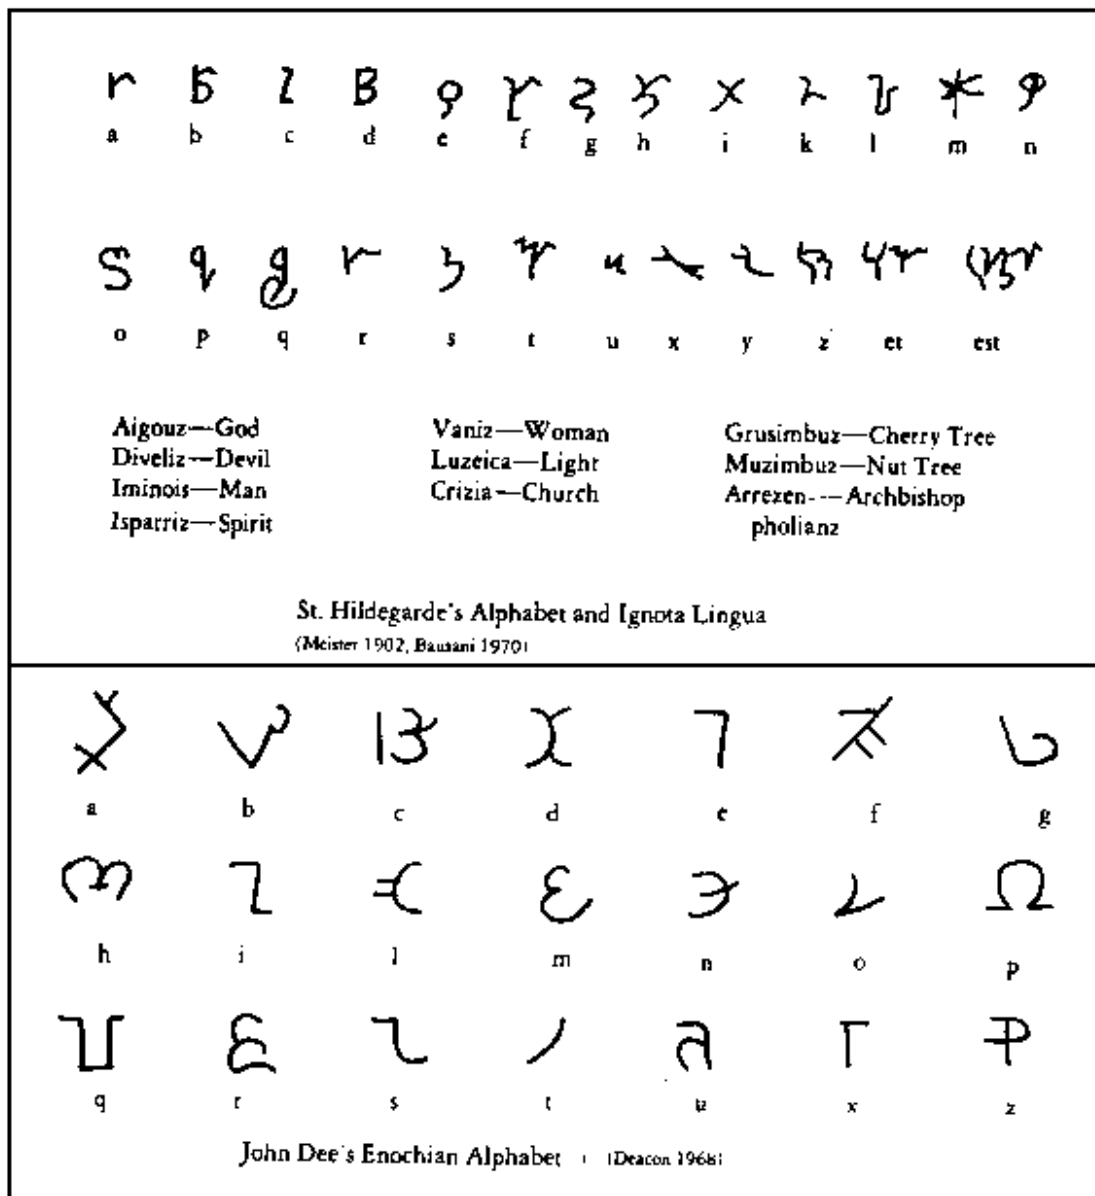 a b c d e f g h i k l m n
o p q r s t u x y z et est
Aigouz—God
Diveliz—Devil
Iminois—Man
Isparriz—Spirit
Vaniz—Woman
Luzeica—Light
Crizia—Church
Grusimbuz—Cherry Tree
Muzimbuz—Nut Tree
Arrezen---Archbishop
pholianz
St. Hildegarde's Alphabet and Ignota Lingua
(Meister 1902, Bausani 1970)
a b c d e f g
h i l m n o p
q r s t u x z
John Dee's Enochian Alphabet (Deacon 1968)